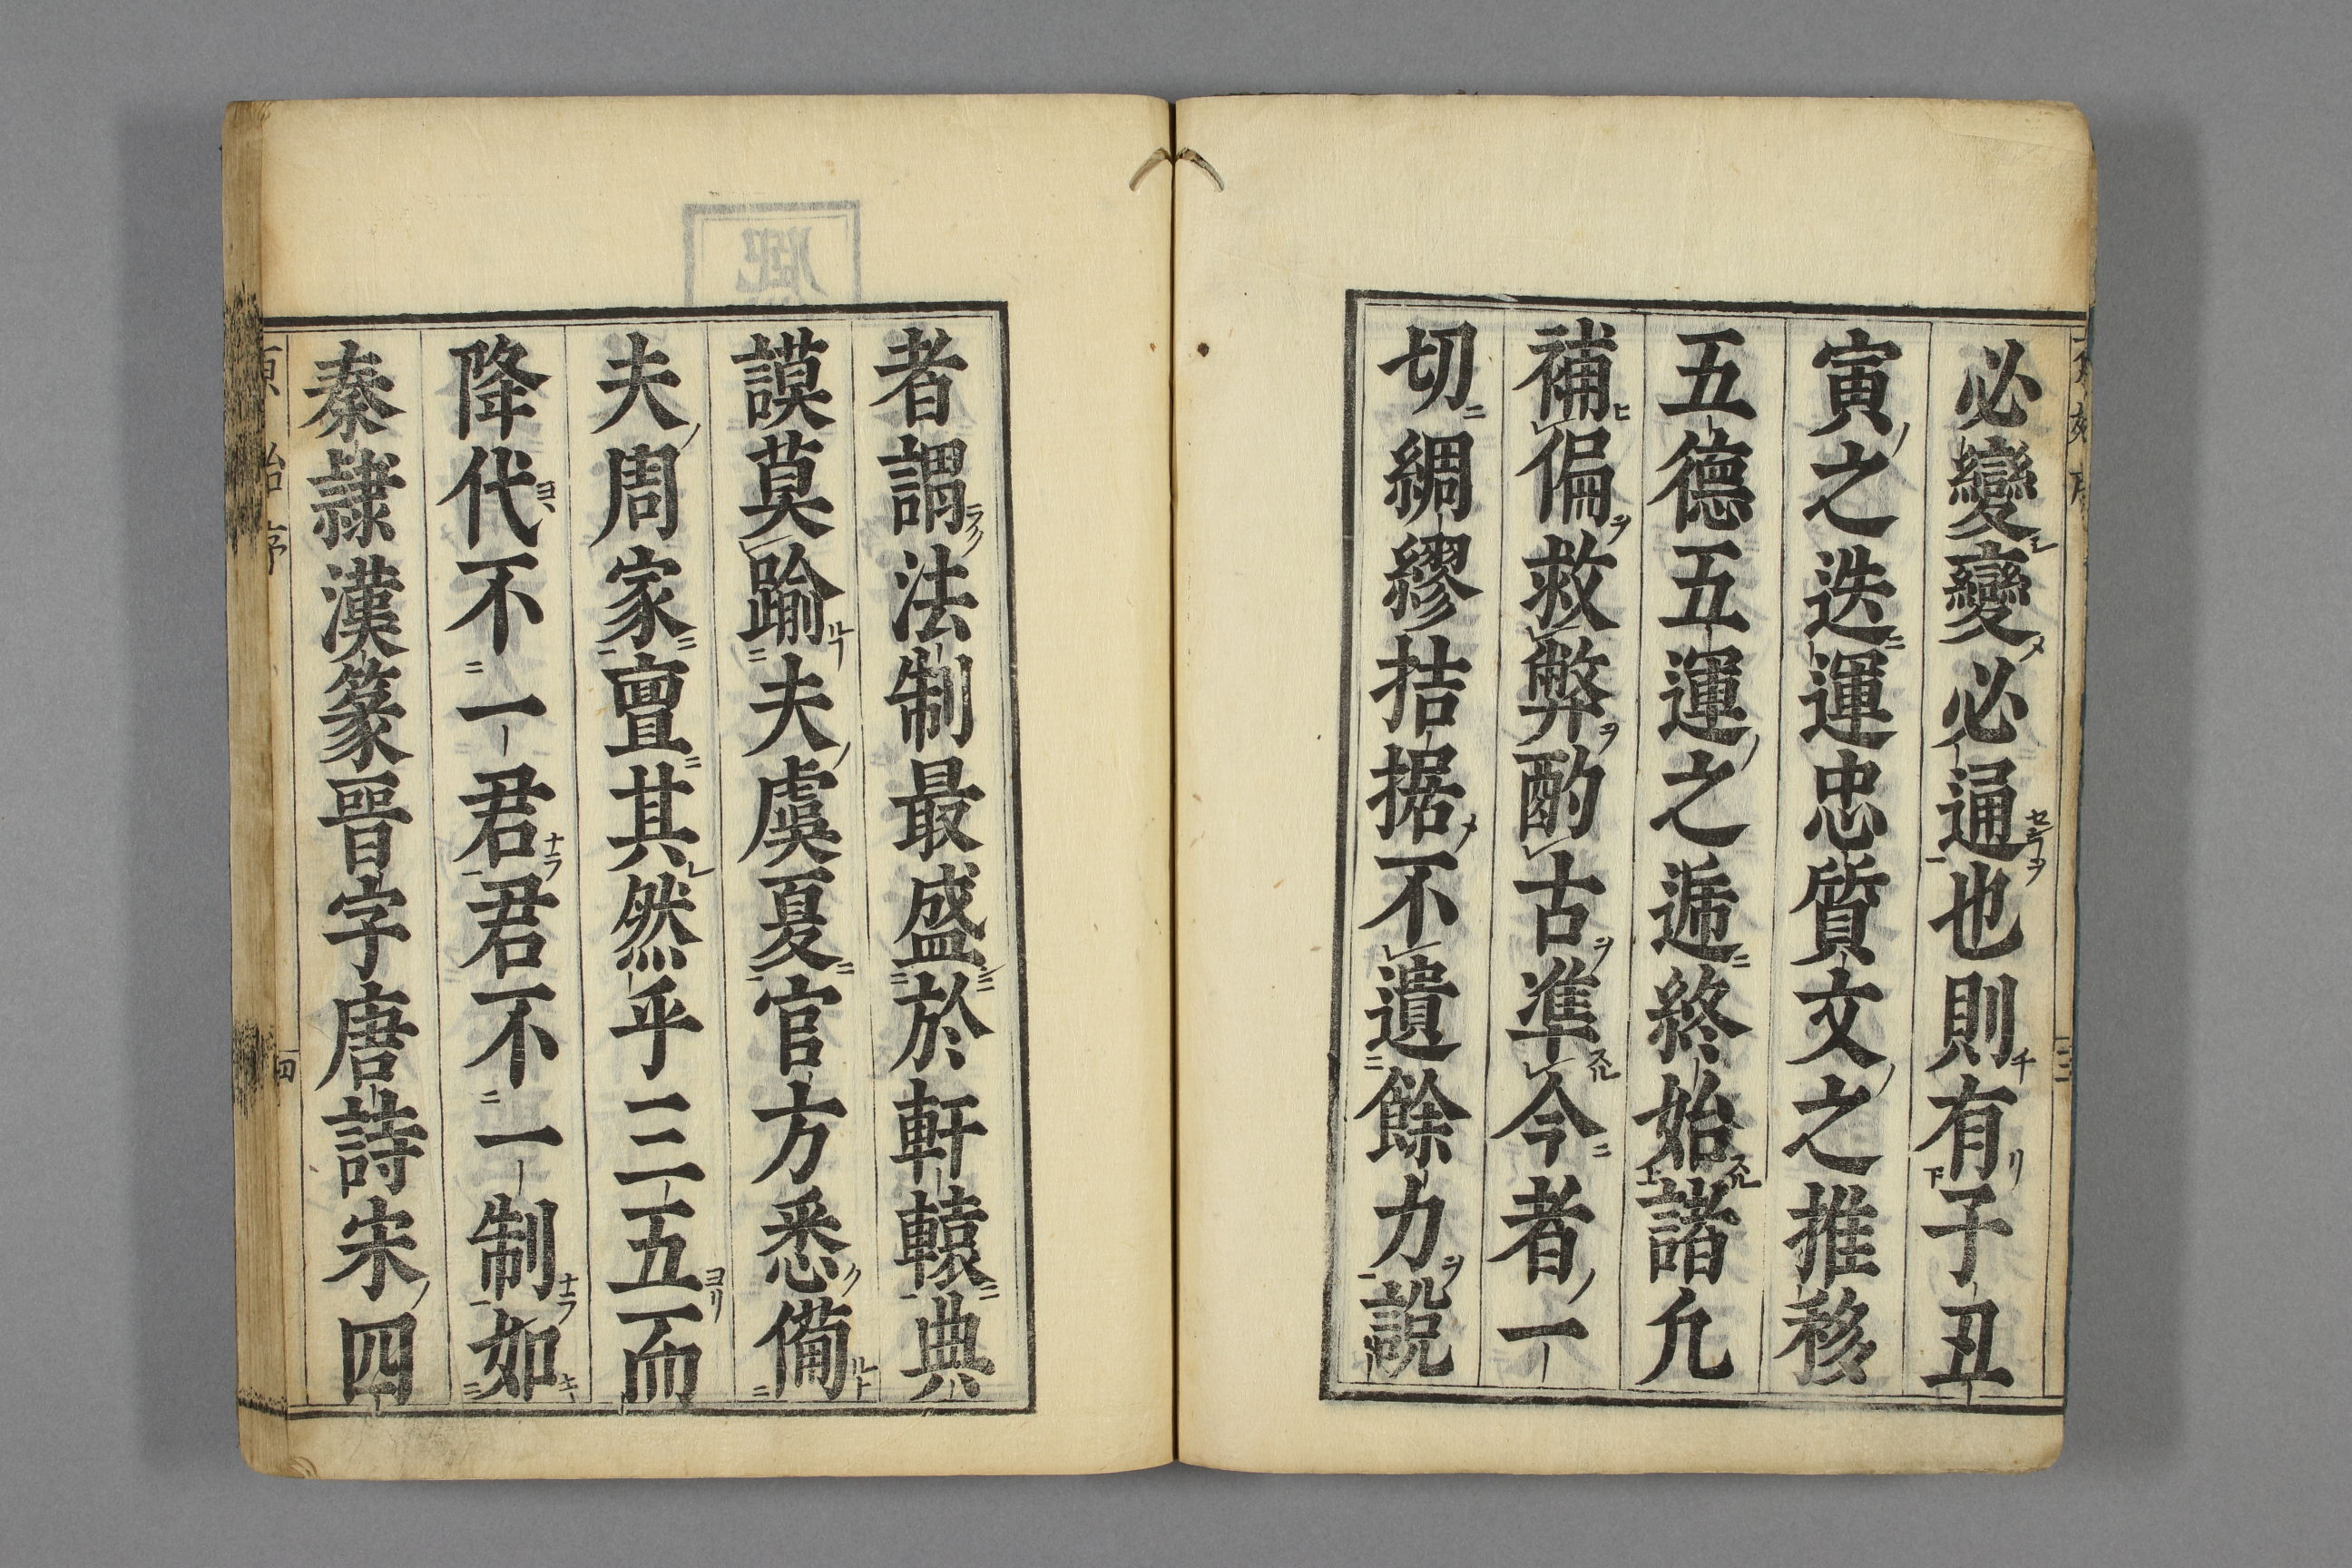 必變變必通也則有子丑
寅之迭運忠質文之推移
五德五運之遞終始諸凡
補偏救弊酌古準今者一
切綢繆拮据不遺餘力説
者謂法制最盛於軒轅典
謨莫踰夫虞夏官方悉備
夫周家亶其然乎三五而
降代不一君君不一制如
秦隷漢篆晉字唐詩宋四